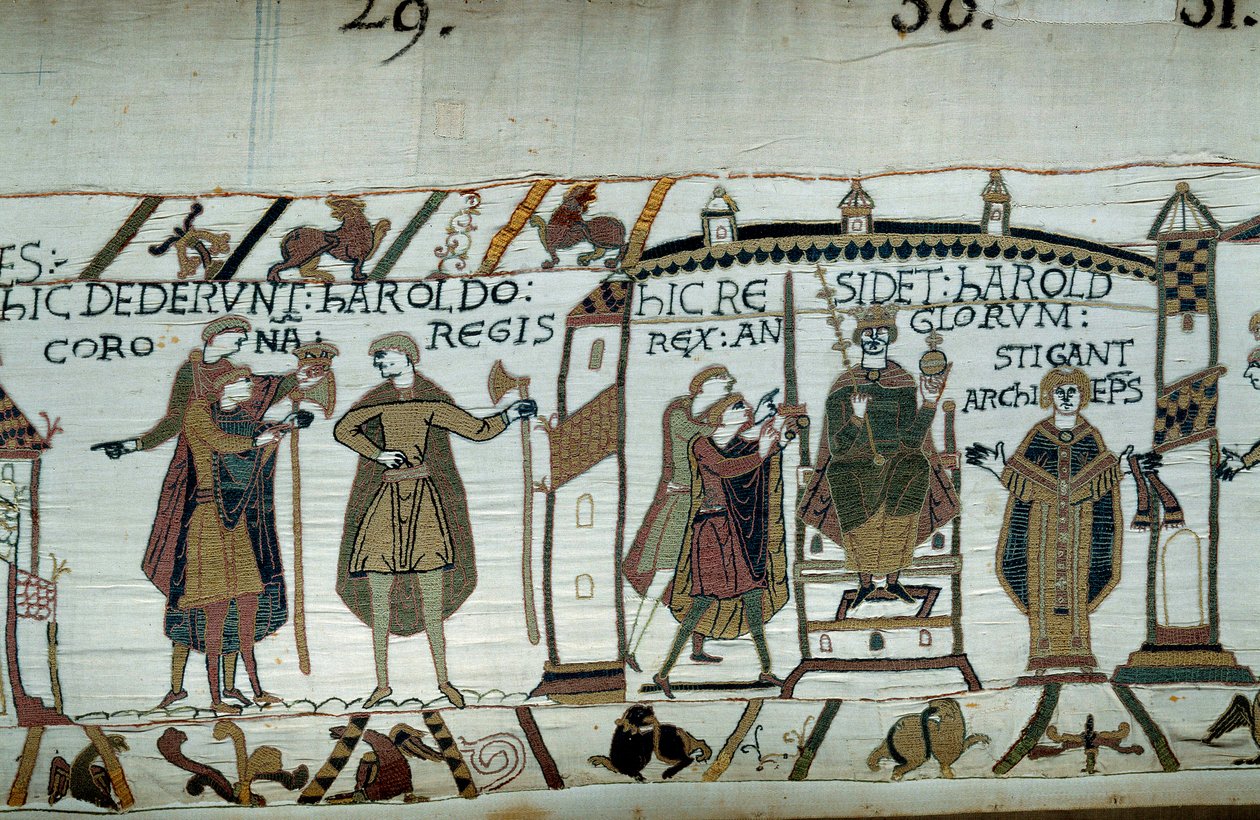 29. 30. 31.
ES:-
hIC DEDERVNT: hAROLDO:
CORO NA: REGIS
hIC RE SIDET: hAROLD
REX: AN GLORVM:
STIGANT
ARChI EPS